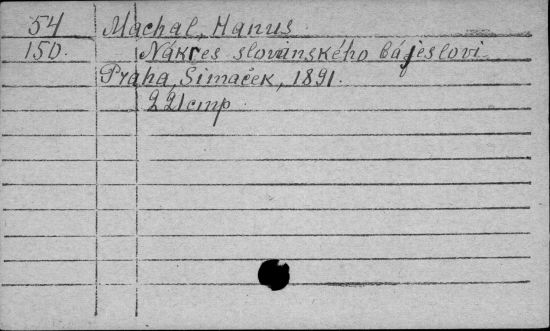 54 Machal, Hanus.
150. Nákres slovanského bájeslovi.
Praha, Simaček, 1891.
221cmp.